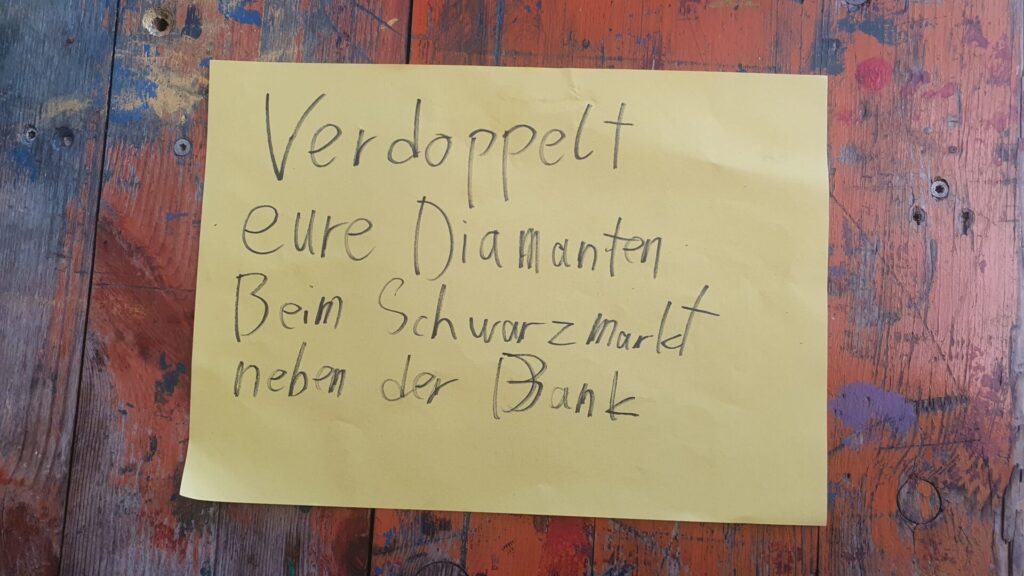 Verdoppelt
eure Diamanten
Beim Schwarzmarkt
neben der Bank